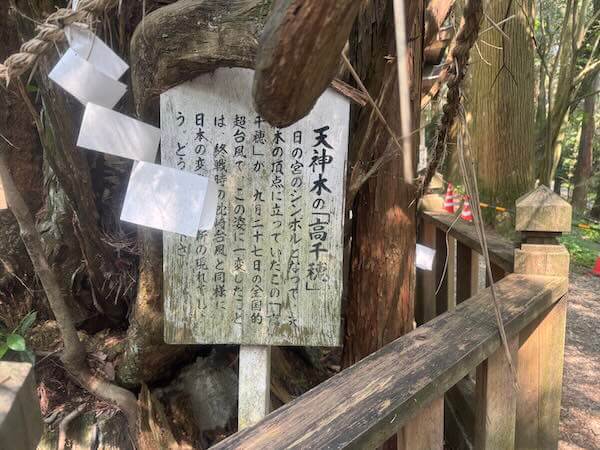 天神木の「高千穂」
日の宮のシンボルとなって、天
木の頂点に立っていたこの「
千穂」が、九月二十七日の全国的
超台風で、この姿に一変したこと
は、終戦時の枕崎台風と同様に
日本の変 の現れでしょ
う。どう 下さ